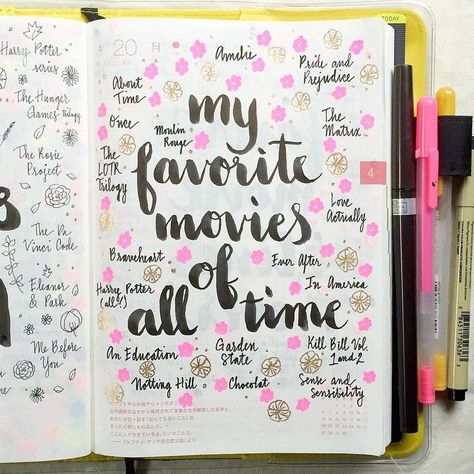 Harry Potter
series
The Hunger
Games trilogy
The Rosie
Project
The Da
Vinci Code
Eleanor
& Park
Me Before
You
4
20
月
TODAY
Amelie
Pride and
Prejudice
About
Time
my
Once
Moulin
Rouge
The
Matrix
The
LOTR
Trilogy
favorite
4
Love
Actually
movies
Braveheart
of
Ever After
Harry Potter
(all!)
In America
all time
An Education
Garden
State
Kill Bill Vol.
1 and 2
Notting Hill
Chocolat
Sense and
Sensibility